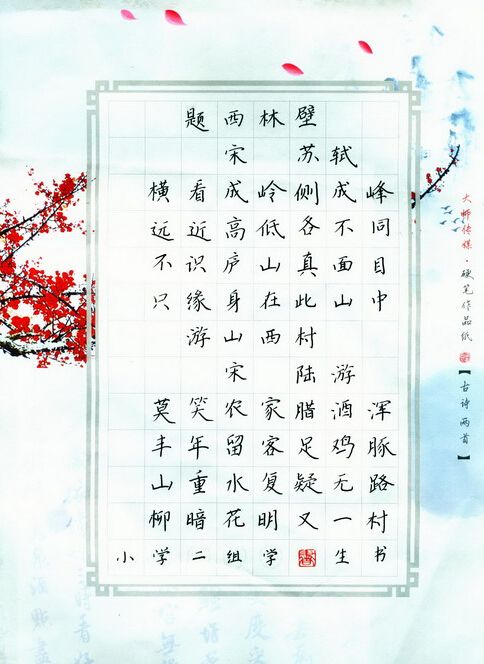 题西林壁
宋 苏轼
横看成岭侧成峰
远近高低各不同
不识庐山真面目
只缘身在此山中
游山西村
宋 陆游
莫笑农家腊酒浑
丰年留客足鸡豚
山重水复疑无路
柳暗花明又一村
小学二组学 生书
大师传媒·硬笔作品纸
【古诗两首】